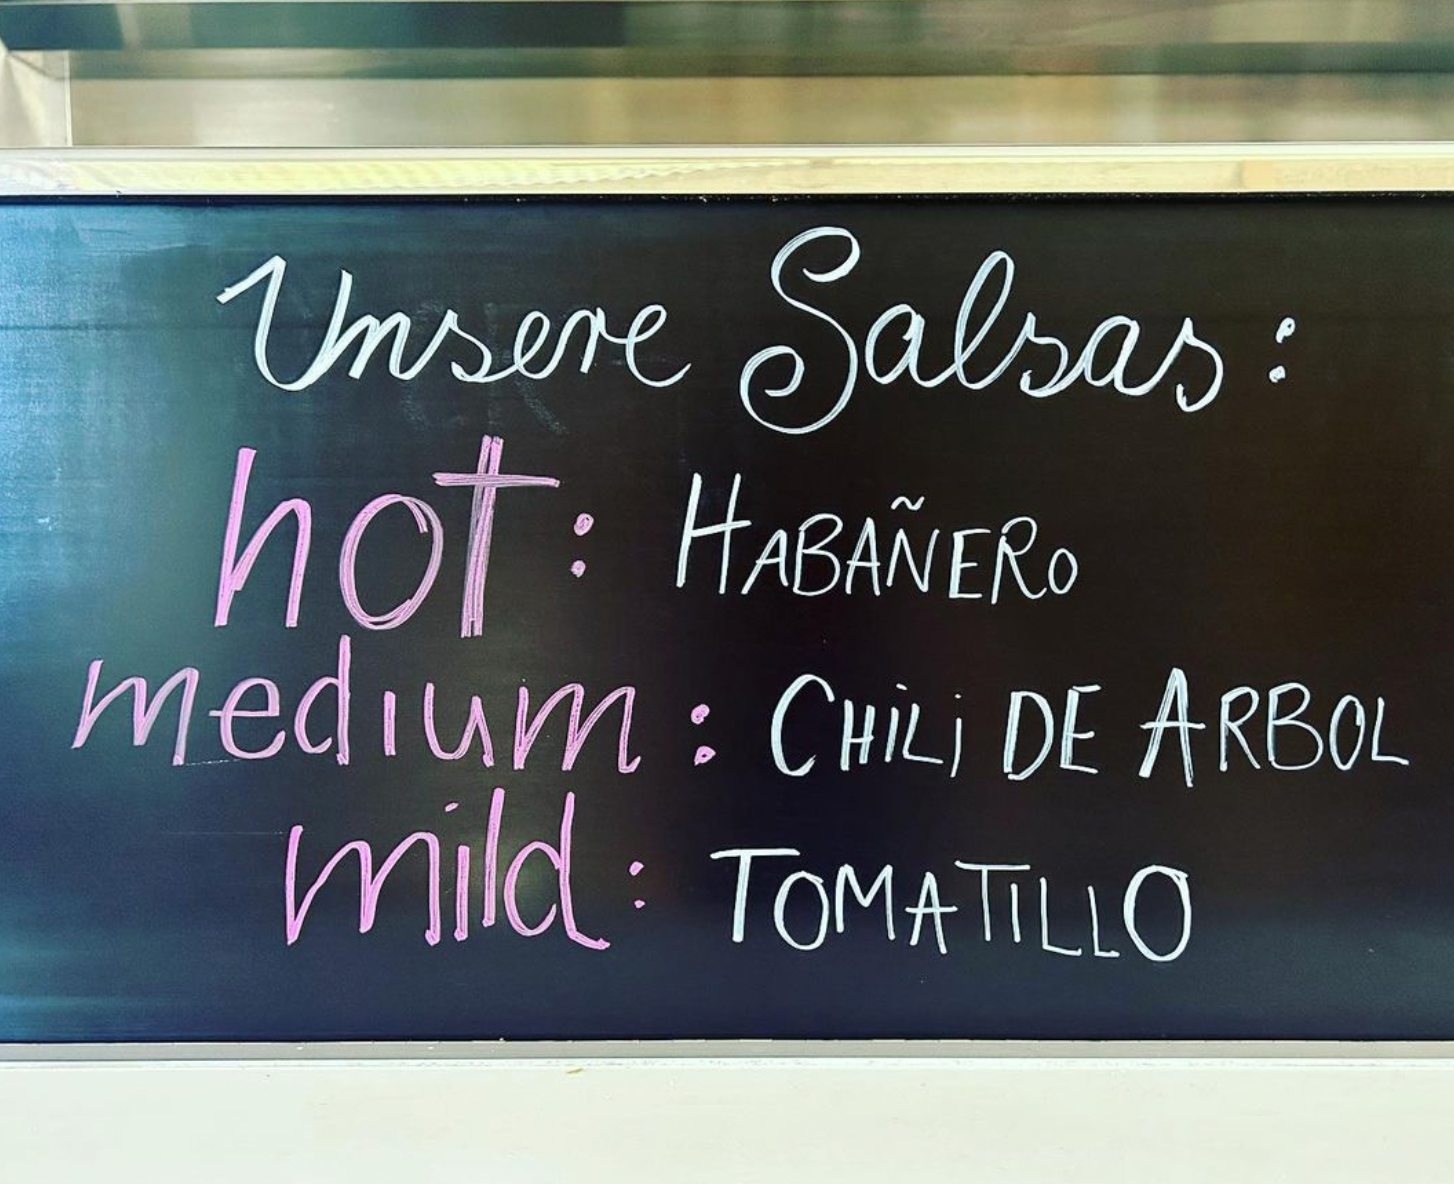 Unsere Salsas:
hot: HABAÑERO
medium: CHiLi DE ARBOL
mild: TOMATILLO